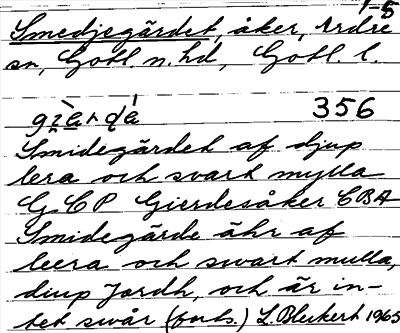 1-5
Smedjegärdet, åker, Ardre
sn, Gotl. n. hd, Gotl. l.
356
Smidegärdet af djup
lera och svart mylla
G CP Gierdesåker CBA
Smidegärde ähr af
leera och swart mulla,
diup Jordh, och är in-
tet swår (forts.) L. Bleckert 1965